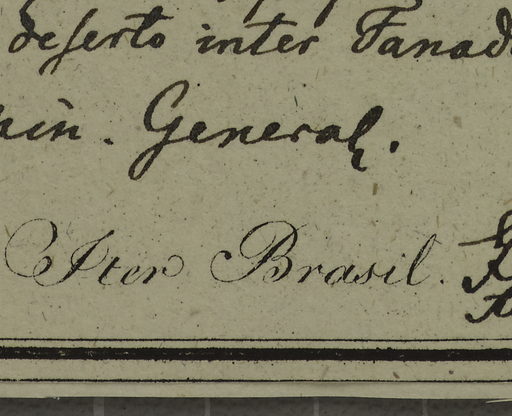 deserto inter Tanad
Min. General.
Iter Brasil.